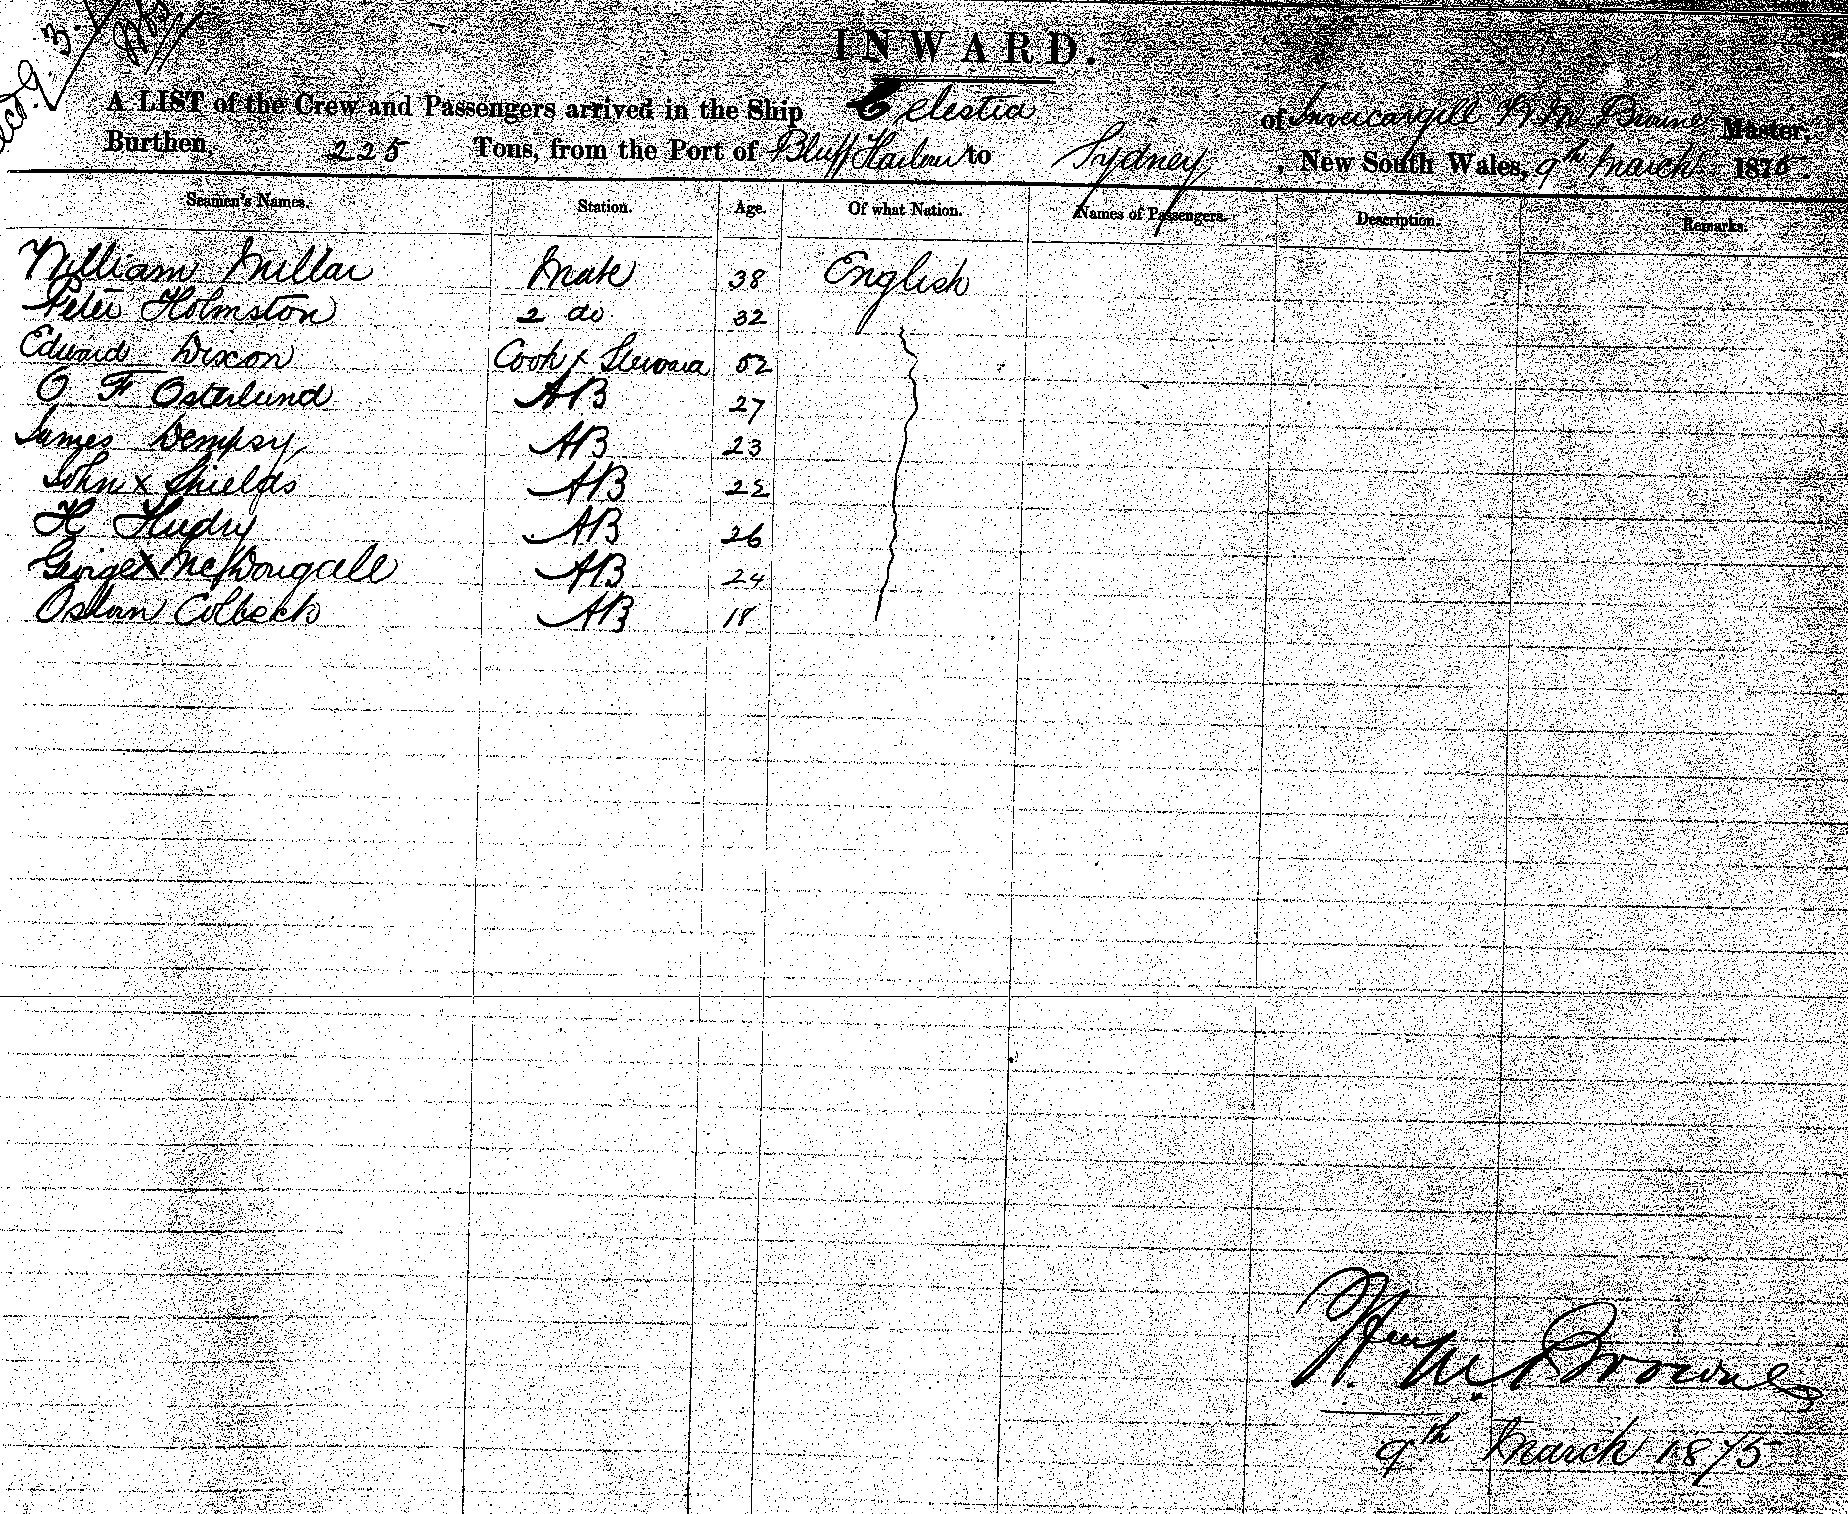 INWARD.
A LIST of the Crew and Passengers arrived in the Ship Celestia of Invercargill W M Browne Master,
Burthen 225 Tons, from the Port of Bluff Harbour to Sydney, New South Wales, 9th March 1875.
Seamen's Names. Station. Age. Of what Nation. Names of Passengers. Description. Remarks.
William Millar Mate 38 English
Peter Holmston 2 do 32
Edward Dixon Cook & Steward 52
O F Osterlund AB 27
James Dempsy AB 23
John x Shields AB 22
H Hudry AB 26
George x McDougall AB 24
Colbeck AB 18
Wm M. Browne
9th March 1875